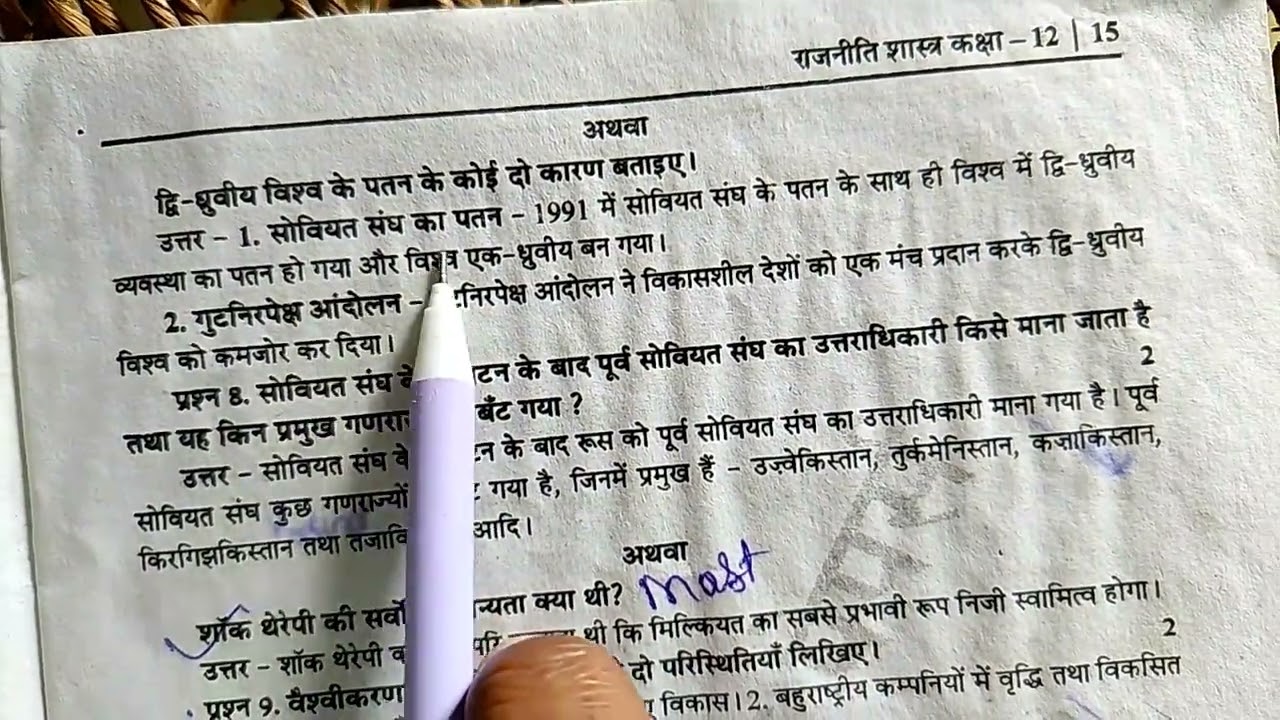 राजनीति शास्त्र कक्षा – 12 | 15
अथवा
द्वि-ध्रुवीय विश्व के पतन के कोई दो कारण बताइए।
उत्तर – 1. सोवियत संघ का पतन – 1991 में सोवियत संघ के पतन के साथ ही विश्व में द्वि-ध्रुवीय
व्यवस्था का पतन हो गया और विश्व एक-ध्रुवीय बन गया।
2. गुटनिरपेक्ष आंदोलन – टनिरपेक्ष आंदोलन ने विकासशील देशों को एक मंच प्रदान करके द्वि-ध्रुवीय
विश्व को कमजोर कर दिया।
प्रश्न 8. सोवियत संघ के टन के बाद पूर्व सोवियत संघ का उत्तराधिकारी किसे माना जाता है
तथा यह किन प्रमुख बँट गया ? 2
उत्तर – सोवियत संघ के टन के बाद रूस को पूर्व सोवियत संघ का उत्तराधिकारी माना गया है। पूर्व
सोवियत संघ कुछ गणराज्यों गया है, जिनमें प्रमुख हैं – उज़्वेकिस्तान, तुर्कमेनिस्तान, कज़ाकिस्तान,
किरगिझकिस्तान तथा आदि।
अथवा
Mast
शॉक थेरेपी की न्यता क्या थी?
उत्तर – शॉक थेरेपी थी कि मिल्कियत का सबसे प्रभावी रूप निजी स्वामित्व होगा।
प्रश्न 9. वैश्वीकरण दो परिस्थितियाँ लिखिए। 2
विकास। 2. बहुराष्ट्रीय कम्पनियों में वृद्धि तथा विकसित